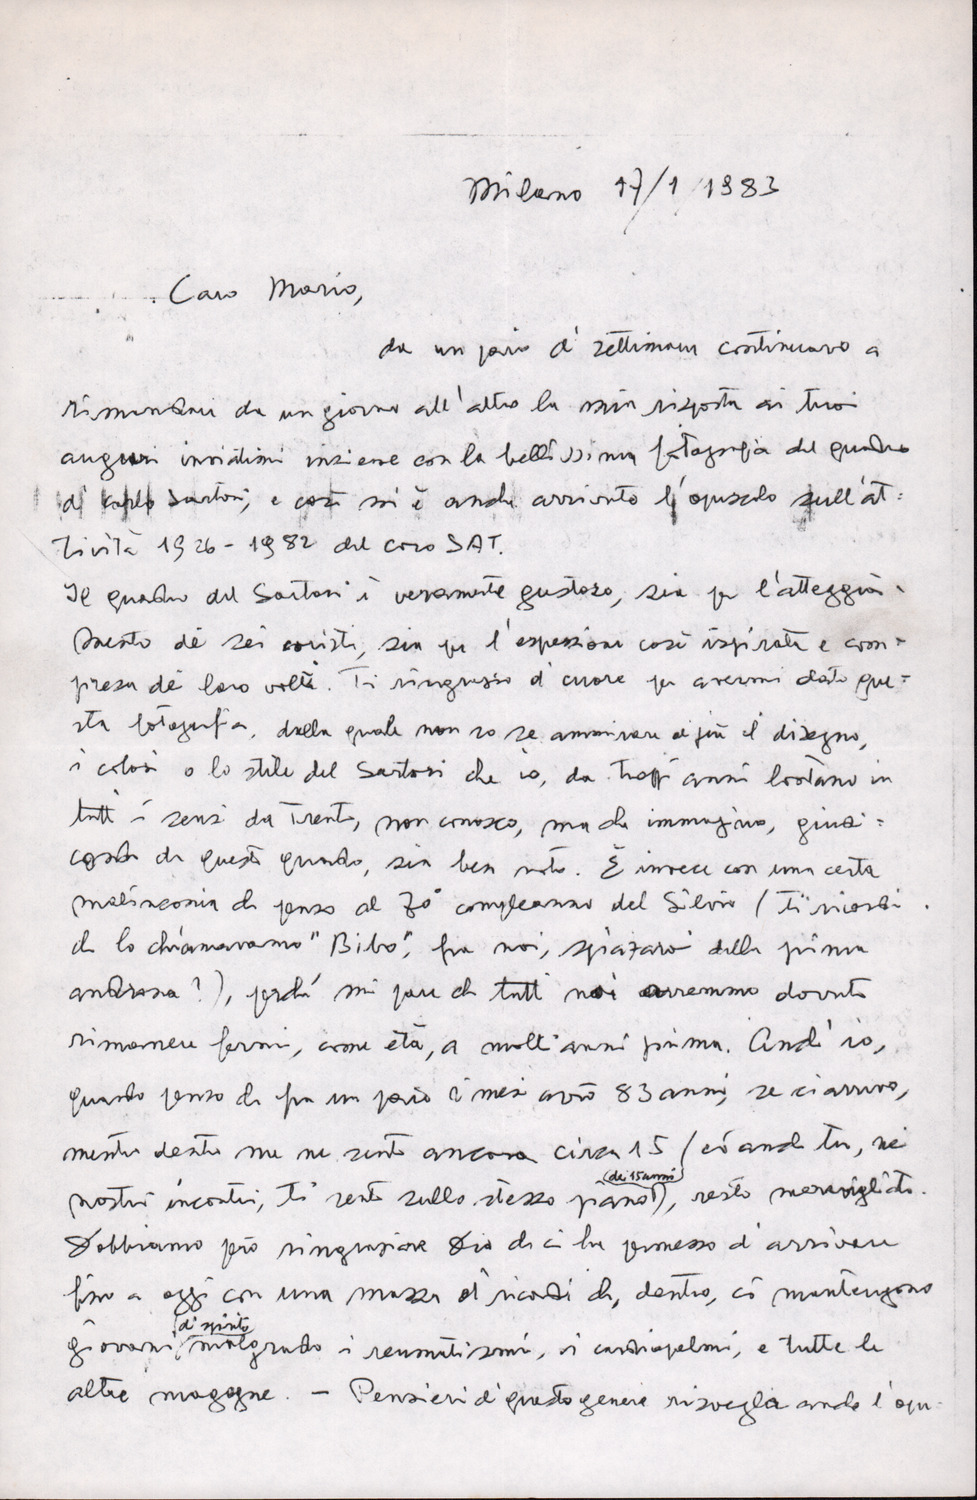 Milano 17/1/1983
Caro Mario,
da un paio di settimane continuavo a
rimandare da un giorno all'altro la mia risposta ai tuoi
auguri inviatimi insieme con la bellissima fotografia del quadro
di Carlo Sartori, e così mi è anche arrivato l'opuscolo sull'at=
tività 1926-1982 del coro SAT.
Il quadro del Sartori è veramente gustoso, sia per l'atteggia-
mento dei sei coristi, sia per l'espressione così ispirata e com=
presa dei loro volti. Ti ringrazio di cuore per avermi dato que=
sta fotografia, dalla quale non so se ammirare di più il disegno,
i colori o lo stile del Sartori che io, da troppi anni lontano in
tutti i sensi da Trento, non conosco, ma che immagino, giudi=
cando da questo quadro, sia ben noto. È invece con una certa
malinconia che penso al 70° compleanno del Silvio (ti ricordi
che lo chiamavamo "Bibo", fra noi, spiazaroi della prima
androna?), perché mi pare che tutti noi avremmo dovuto
rimanere fermi, come età, a molti anni prima. Anch'io,
quando penso che fra un paio di mesi avrò 83 anni, se ci arrivo,
mentre dentro me ne sento ancora circa 15 (e anche tu, nei
nostri incontri, ti sento sullo stesso piano (dei 15 anni)), resto meravigliato.
Dobbiamo però ringraziare Dio che ci ha permesso di arrivare
fino a oggi con una massa di ricordi che, dentro, ci mantengono
giovani (di spirito) malgrado i reumatismi, i cardiopalmi, e tutte le
altre magagne. - Pensieri di questo genere risveglia anche l'opu-